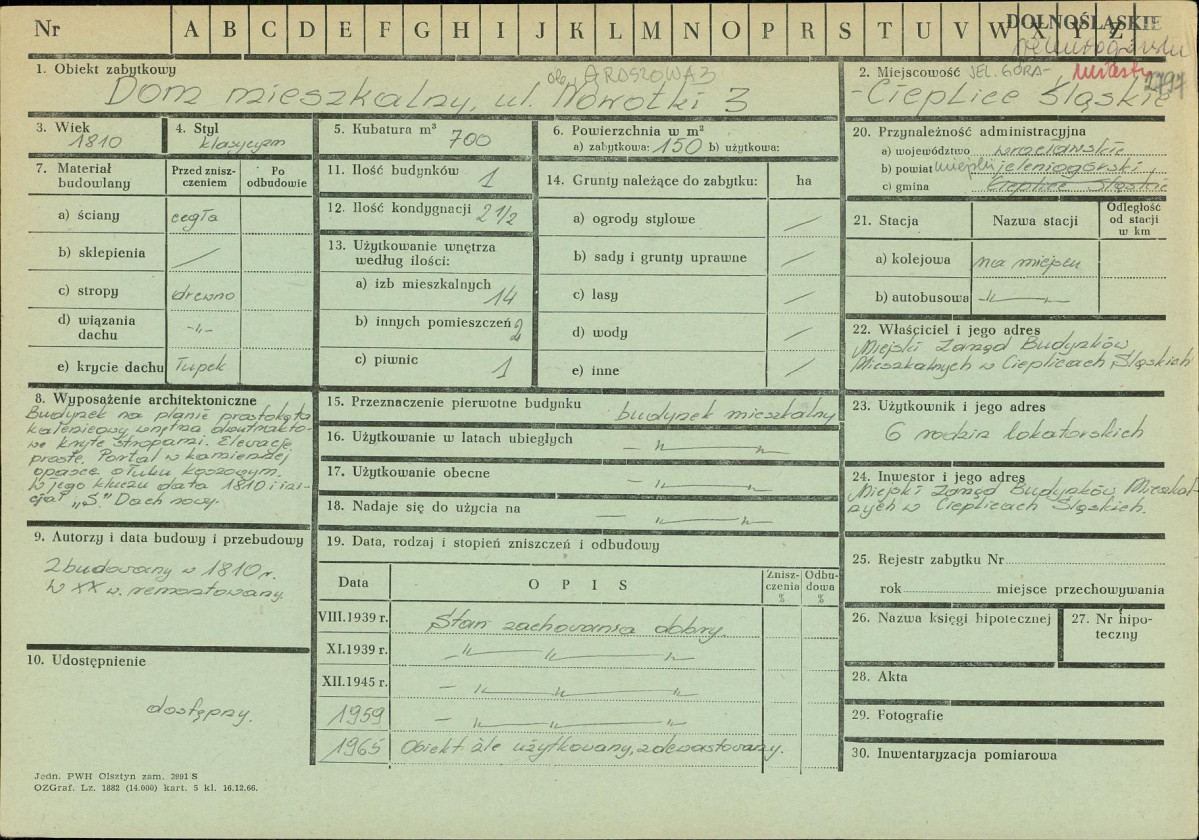 Nr A B C D E F G H I J K L M N O P R S T U V W X Y Z
DOLNOŚLĄSKIE
1. Obiekt zabytkowy
ob. GROSZOWA 3
Dom mieszkalny, ul. Nowotki 3
2. Miejscowość JEL. GÓRA-
2797
-Cieplice Śląskie
3. Wiek
1810
4. Styl
klasycyzm
5. Kubatura m³ 700
6. Powierzchnia w m²
a) zabytkowa: 150 b) użytkowa:
7. Materiał budowlany
Przed zniszczeniem
Po odbudowie
a) ściany cegła
b) sklepienia /
c) stropy drewno
d) wiązania dachu -„-
e) krycie dachu łupek
11. Ilość budynków 1
12. Ilość kondygnacji 2 1/2
13. Użytkowanie wnętrza
według ilości:
a) izb mieszkalnych 14
b) innych pomieszczeń
c) piwnic 1
14. Grunty należące do zabytku: ha
a) ogrody stylowe /
b) sady i grunty uprawne /
c) lasy /
d) wody /
e) inne /
8. Wyposażenie architektoniczne
Budynek na planie prostokąta
kalenicowy wnętrza dwutrakto-
we kryte stropami. Elewacje
proste. Portal w kamiennej
opasce o łuku koszowym.
W jego kluczu data 1810 i ini-
cjał „S". Dach nowy.
9. Autorzy i data budowy i przebudowy
Zbudowany w 1810 r.
W XX w. remontowany.
10. Udostępnienie
dostępny.
15. Przeznaczenie pierwotne budynku budynek mieszkalny
16. Użytkowanie w latach ubiegłych — „ — „ —
17. Użytkowanie obecne — „ — „ —
18. Nadaje się do użycia na — „ — „ —
19. Data, rodzaj i stopień zniszczeń i odbudowy
Data OPIS Zniszczenia % Odbudowa %
VIII.1939 r. Stan zachowania dobry.
XI.1939 r. — „ — „ — „ —
XII.1945 r. — „ — „ — „ —
1959 — „ — „ — „ —
1965 Obiekt źle użytkowany, zdewastowany.
20. Przynależność administracyjna
a) województwo wrocławskie
b) powiat miejski jeleniogórski
c) gmina Cieplice Śląskie
21. Stacja Nazwa stacji Odległość od stacji w km
a) kolejowa na miejscu
b) autobusowa -„-
22. Właściciel i jego adres
Miejski Zarząd Budynków
Mieszkalnych w Cieplicach Śląskich
23. Użytkownik i jego adres
6 rodzin lokatorskich
24. Inwestor i jego adres
Miejski Zarząd Budynków Mieszkal-
nych w Cieplicach Śląskich.
25. Rejestr zabytku Nr
rok miejsce przechowywania
26. Nazwa księgi hipotecznej
27. Nr hipo-
teczny
28. Akta
29. Fotografie
30. Inwentaryzacja pomiarowa
Jedn. PWH Olsztyn zam. 2991 S
OZGraf. Lz. 1882 (14.000) kart. 5 kl. 16.12.66.